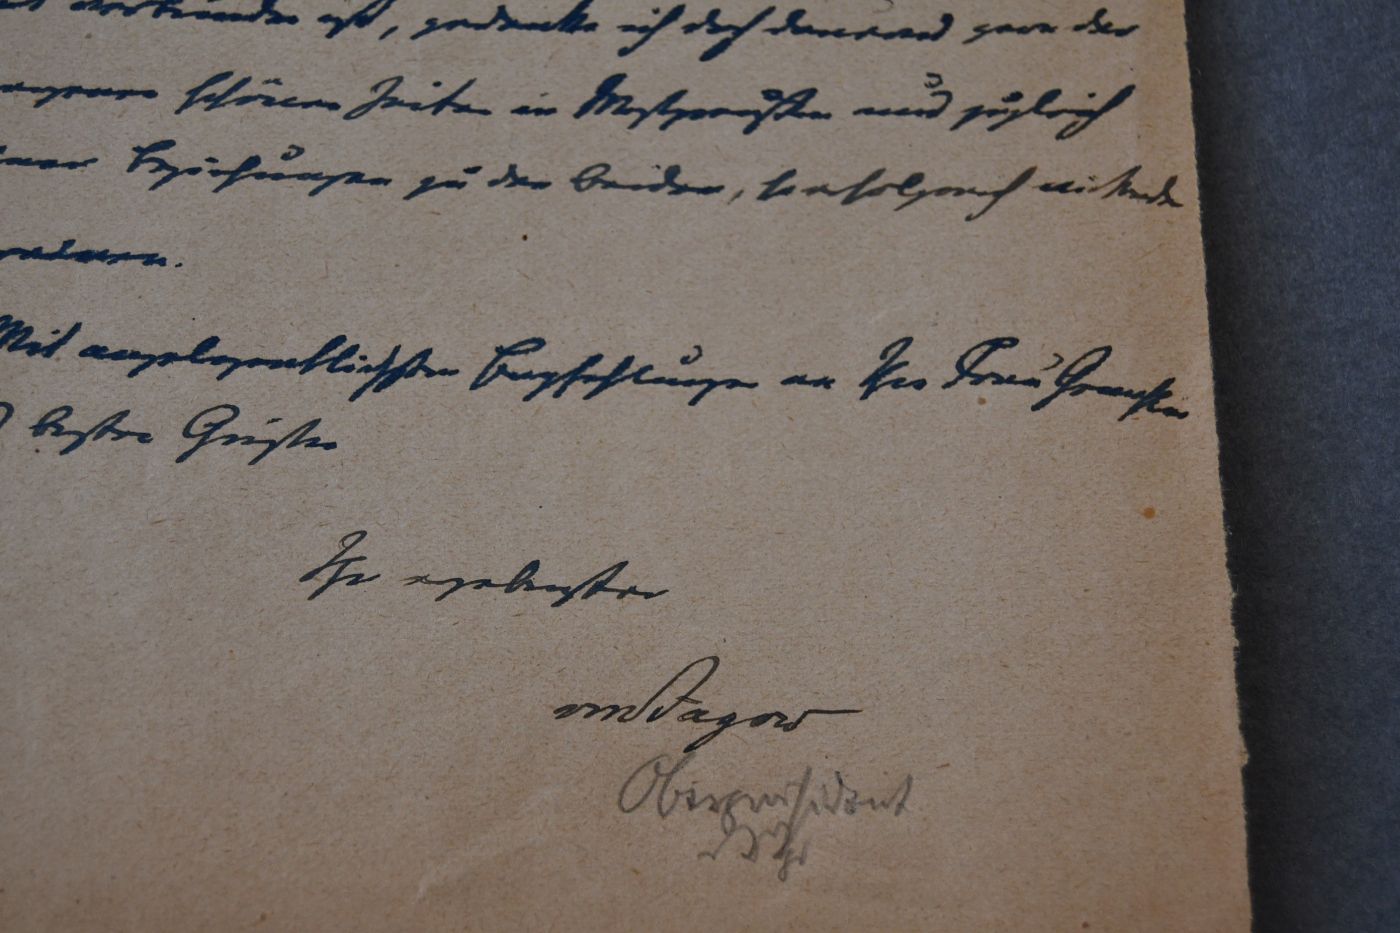 verbunden ist, gedenke ich doch dauernd gern der
schönen Zeiten in Westpreußen und zugleich
Beziehungen zu den beiden, so erfolgreich wirkenden
Mit angelegentlichsten Empfehlungen an Ihre Frau Gemahlin
besten Grüßen
Ihr ergebenster
von Jagow
Oberpräsident